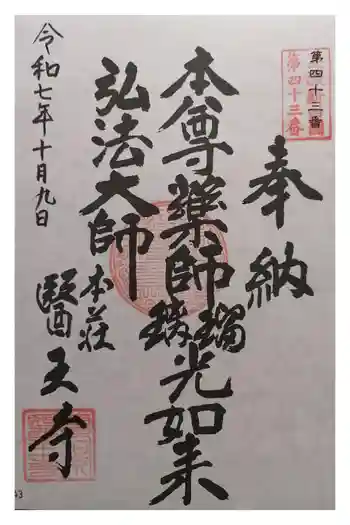 第四十三番
第四十三番
奉納
本尊藥師瑠璃光如来
弘法大師
本荘
醫王寺
令和七年十月九日
43